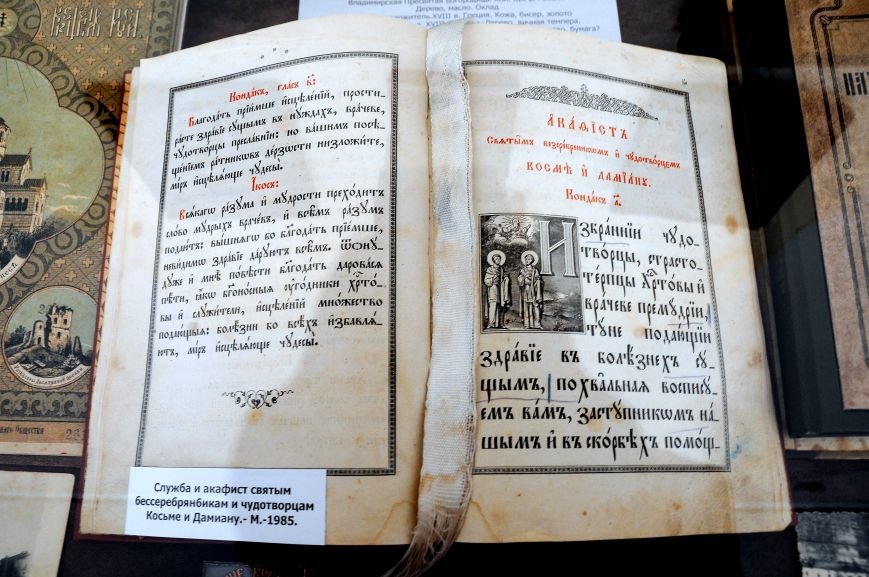 Владимирская Пресвятая Богородица
Дерево, масло. Оклад
XVIII в. Греция. Кожа, бисер, золото
Дерево, яичная темпера.
бумага?
Кондакъ, гласъ в҃:
Благодать прїемше исцѣленїй, прости-
раете здравїе сущымъ въ нуждахъ, врачеве,
чудотворцы преславнїи: но вашимъ посѣ-
щенїемъ ратникωвъ дерзости низложите,
мїръ исцѣляюще чудесы.
Ікосъ:
Всякагω разума и мудрости преходитъ
слово мудрыхъ врачевъ, и всѣмъ разумъ
подаютъ: вышнягω бо благодать прїемше,
невидимω здравїе даруютъ всѣмъ. Ѿѻну-
дуже и мнѣ повѣсти благодать даровася
пѣти, ꙗкω бг҃оносныя угодники хрⷭ҇то-
вы и служители, исцѣленїй множество
подающыя: болѣзни бо всѣхъ избавля-
ютъ, мїръ исцѣляюще чудесы.
АКАѲІСТЪ
Святымъ безсребрєникωмъ и чудотворцемъ
КОСМѢ И ДАМІАНУ.
Кондакъ а҃.
Избраннїи чудо-
творцы, страсто-
терпцы Хрⷭ҇товы и
врачеве премудрїи,
туне подающїи
здравїе въ болѣзнехъ су-
щымъ, похвальная воспису-
емъ вамъ, заступникωмъ на-
шымъ и въ скорбѣхъ помощ-
Служба и акафист святым
бессеребрянбикам и чудотворцам
Косьме и Дамиану.- М.-1985.